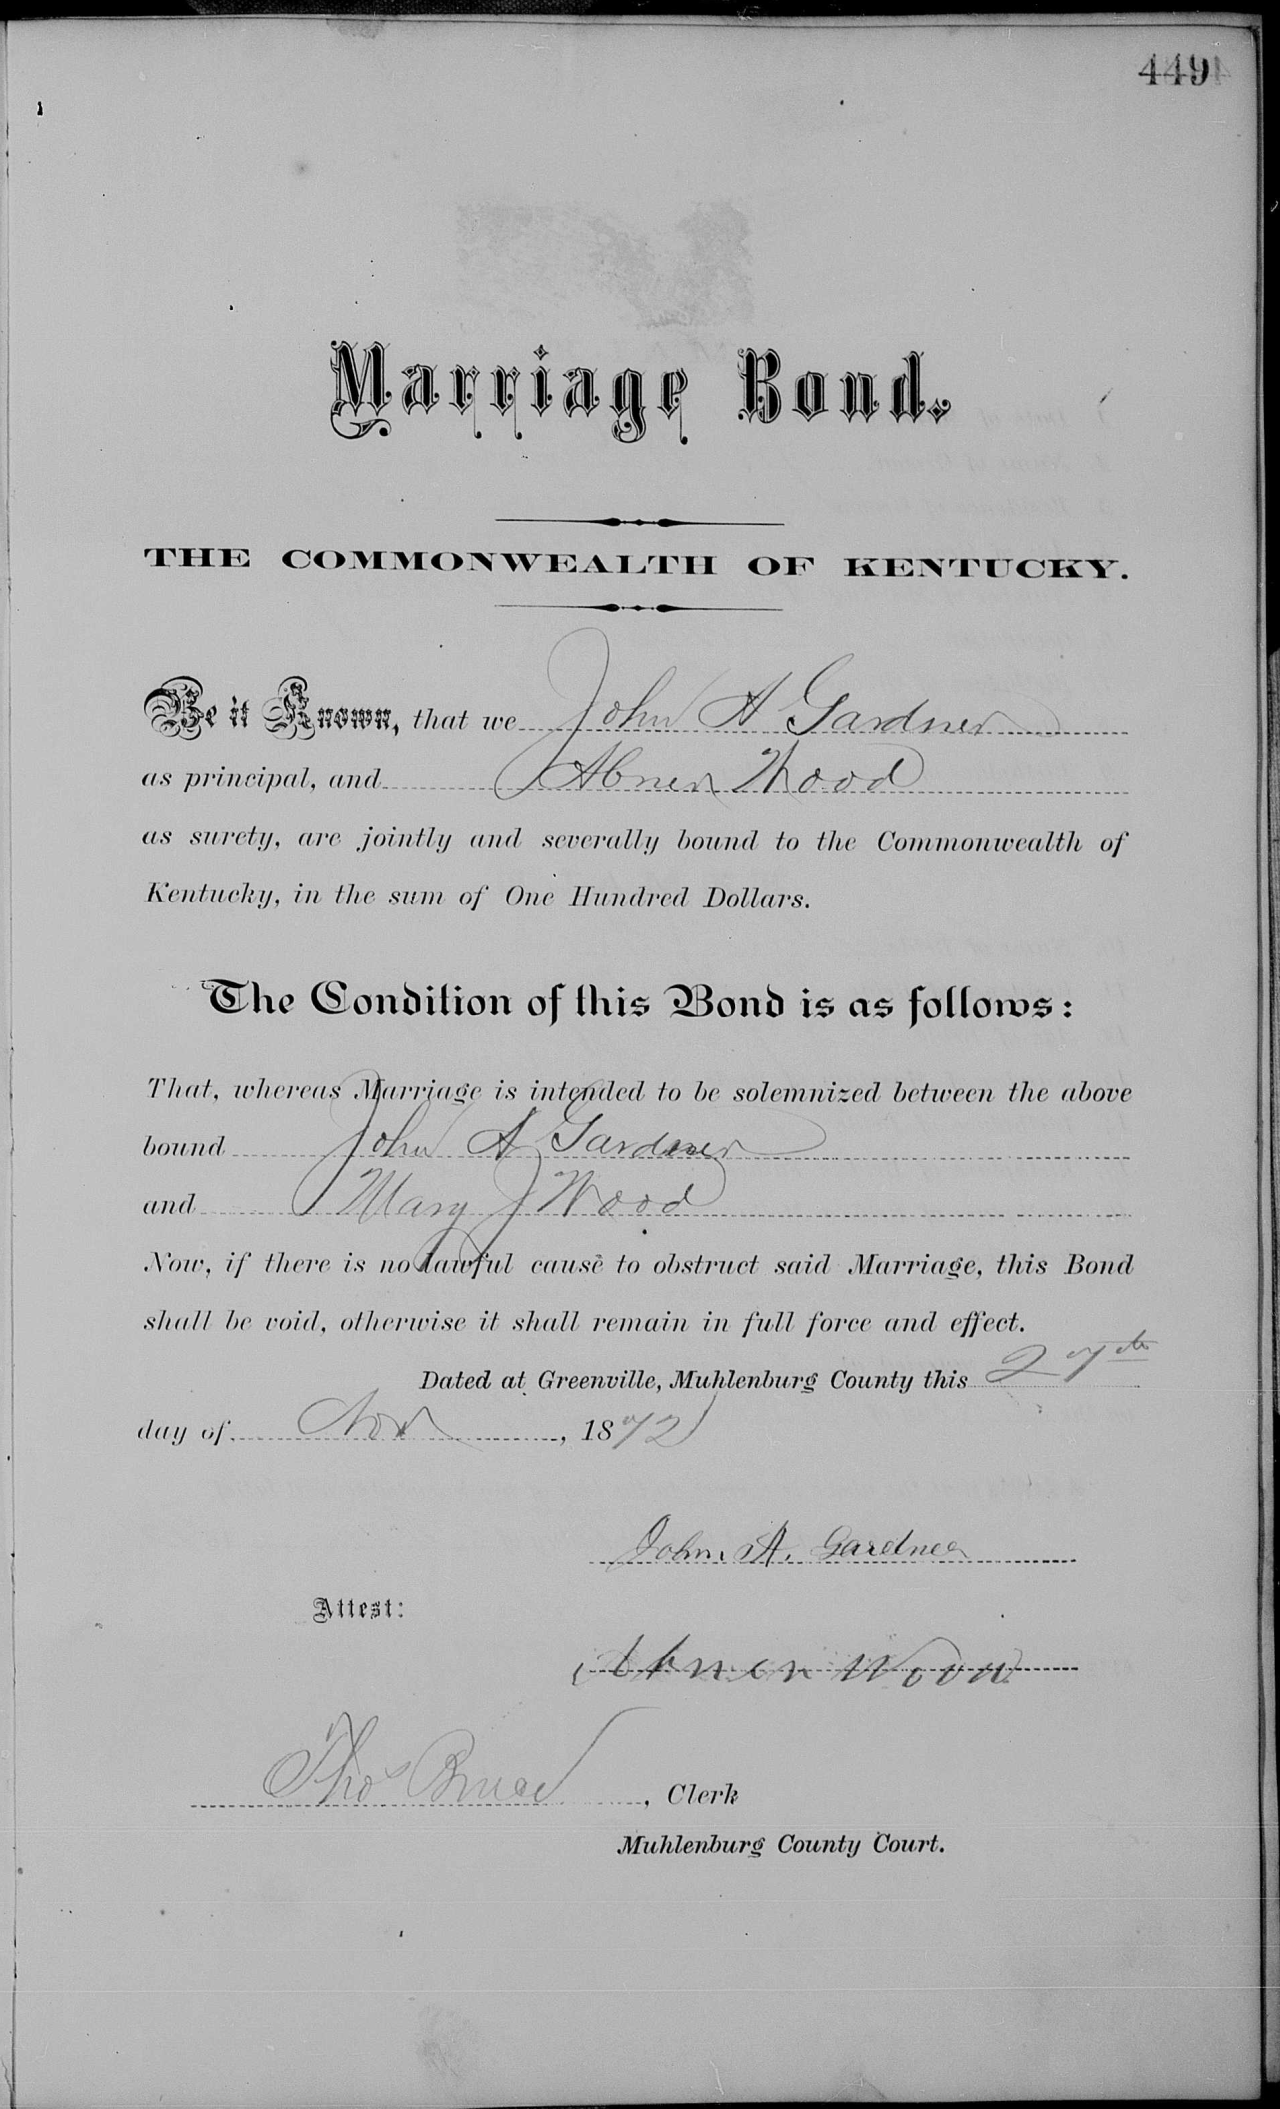 449
Marriage Bond.
THE COMMONWEALTH OF KENTUCKY.
Be it Known, that we John A Gardner
as principal, and Abner Wood
as surety, are jointly and severally bound to the Commonwealth of
Kentucky, in the sum of One Hundred Dollars.
The Condition of this Bond is as follows:
That, whereas Marriage is intended to be solemnized between the above
bound John A Gardner
and Mary J Wood
Now, if there is no lawful cause to obstruct said Marriage, this Bond
shall be void, otherwise it shall remain in full force and effect.
Dated at Greenville, Muhlenburg County this 27th
day of Nov, 1872
John. A. Gardner
Attest:
Abner Wood
Thos Bruce, Clerk
Muhlenburg County Court.